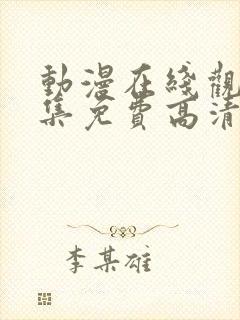 動漫在綫觀
集免費高清
李某雄